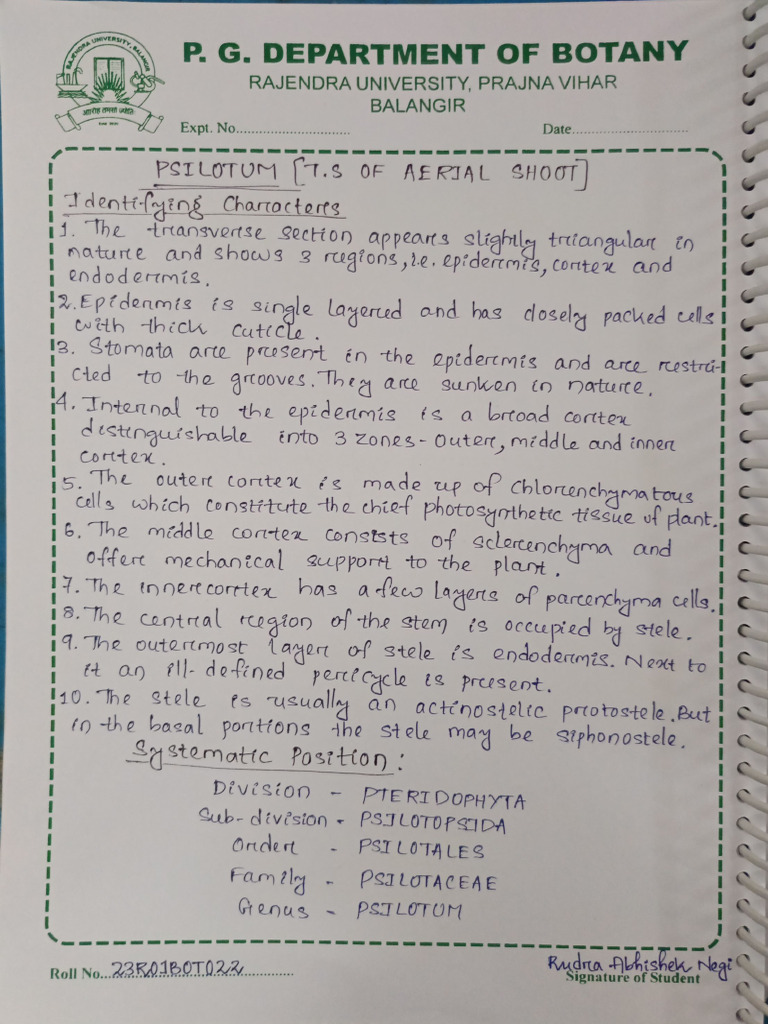 RAJENDRA UNIVERSITY, BALANGIR
P. G. DEPARTMENT OF BOTANY
RAJENDRA UNIVERSITY, PRAJNA VIHAR
BALANGIR
Expt. No............................... Date................................
PSILOTUM [T.S OF AERIAL SHOOT]
Identifying Characters
1. The transverse section appears slightly triangular in
nature and shows 3 regions, i.e. epidermis, cortex and
endodermis.
2. Epidermis is single layered and has closely packed cells
with thick cuticle.
3. Stomata are present in the epidermis and are restri-
cted to the grooves. They are sunken in nature.
4. Internal to the epidermis is a broad cortex
distinguishable into 3 zones - outer, middle and inner
cortex.
5. The outer cortex is made up of chlorenchymatous
cells which constitute the chief photosynthetic tissue of plant.
6. The middle cortex consists of sclerenchyma and
offer mechanical support to the plant.
7. The inner cortex has a few layers of parenchyma cells.
8. The central region of the stem is occupied by stele.
9. The outermost layer of stele is endodermis. Next to
it an ill-defined pericycle is present.
10. The stele is usually an actinostelic protostele. But
in the basal portions the stele may be siphonostele.
Systematic Position :
Division - PTERIDOPHYTA
Sub-division - PSILOTOPSIDA
Order - PSILOTALES
Family - PSILOTACEAE
Genus - PSILOTUM
Roll No... 23R01BOT022 ............
Rudra Abhishek Negi
Signature of Student